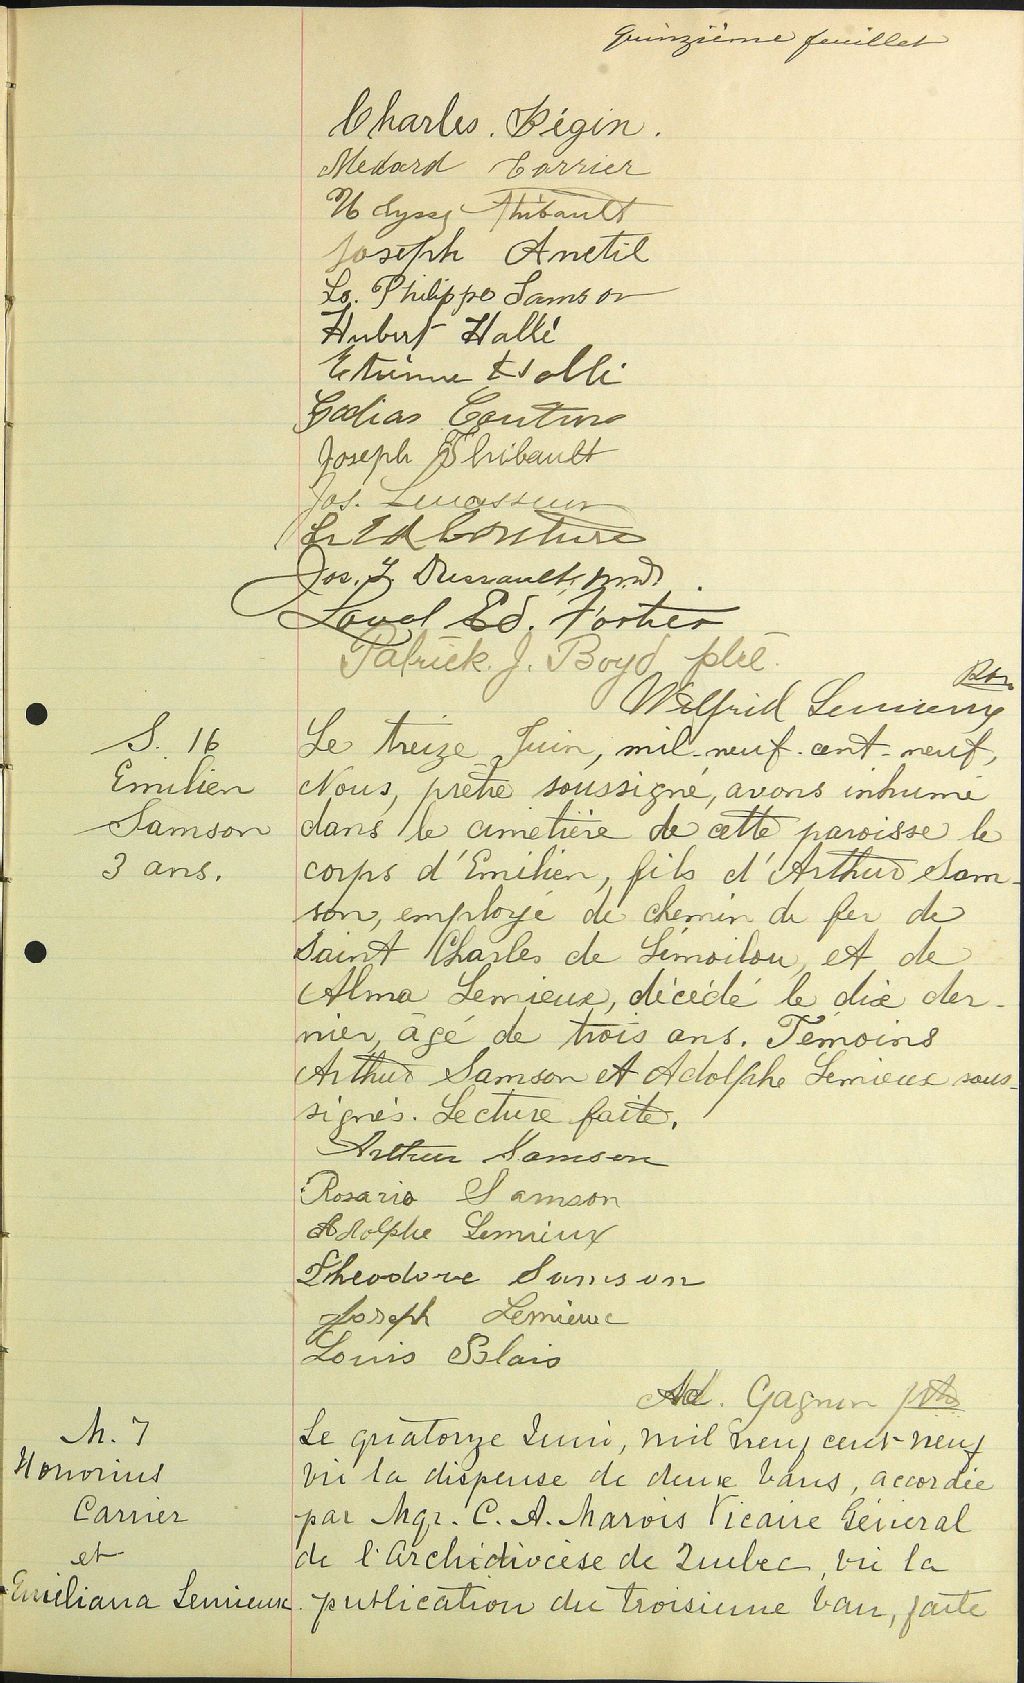 Quinzième feuillet
Charles. Bégin.
Medard Carrier
Ulysse Thibault
Joseph Anctil
Ls. Philippe Samson
Hubert Hallé
Etienne Hallé
Gédias Couture
Joseph Thibault
Jos. Levasseur
Ls Ed Couture
Jos. Dussault,
Ed. Fortier
Patrick. J. Boyd ptre.
Wilfrid Lemieux
S. 16
Emilien
Samson
3 ans.
Le treize Juin, mil-neuf-cent-neuf,
Nous, prêtre soussigné, avons inhumé
dans le cimetière de cette paroisse le
corps d'Emilien, fils d'Arthur Sam-
son, employé de chemin de fer de
Saint Charles de Limoilou, et de
Alma Lemieux, décédé le dix der-
nier, âgé de trois ans. Témoins
Arthur Samson et Adolphe Lemieux sous-
signés. Lecture faite.
Arthur Samson
Rosario Samson
Adolphe Lemieux
Theodore Samson
Joseph Lemieux
Louis Blais
Ad. Gagnon ptre
M. 7
Honorius
Carrier
et
Eméliana Lemieux.
Le quatorze Juin, mil neuf cent-neuf
vu la dispense de deux bans, accordée
par Mgr. C. A. Marois Vicaire Général
de l'Archidiocèse de Québec, vu la
publication du troisième ban, faite